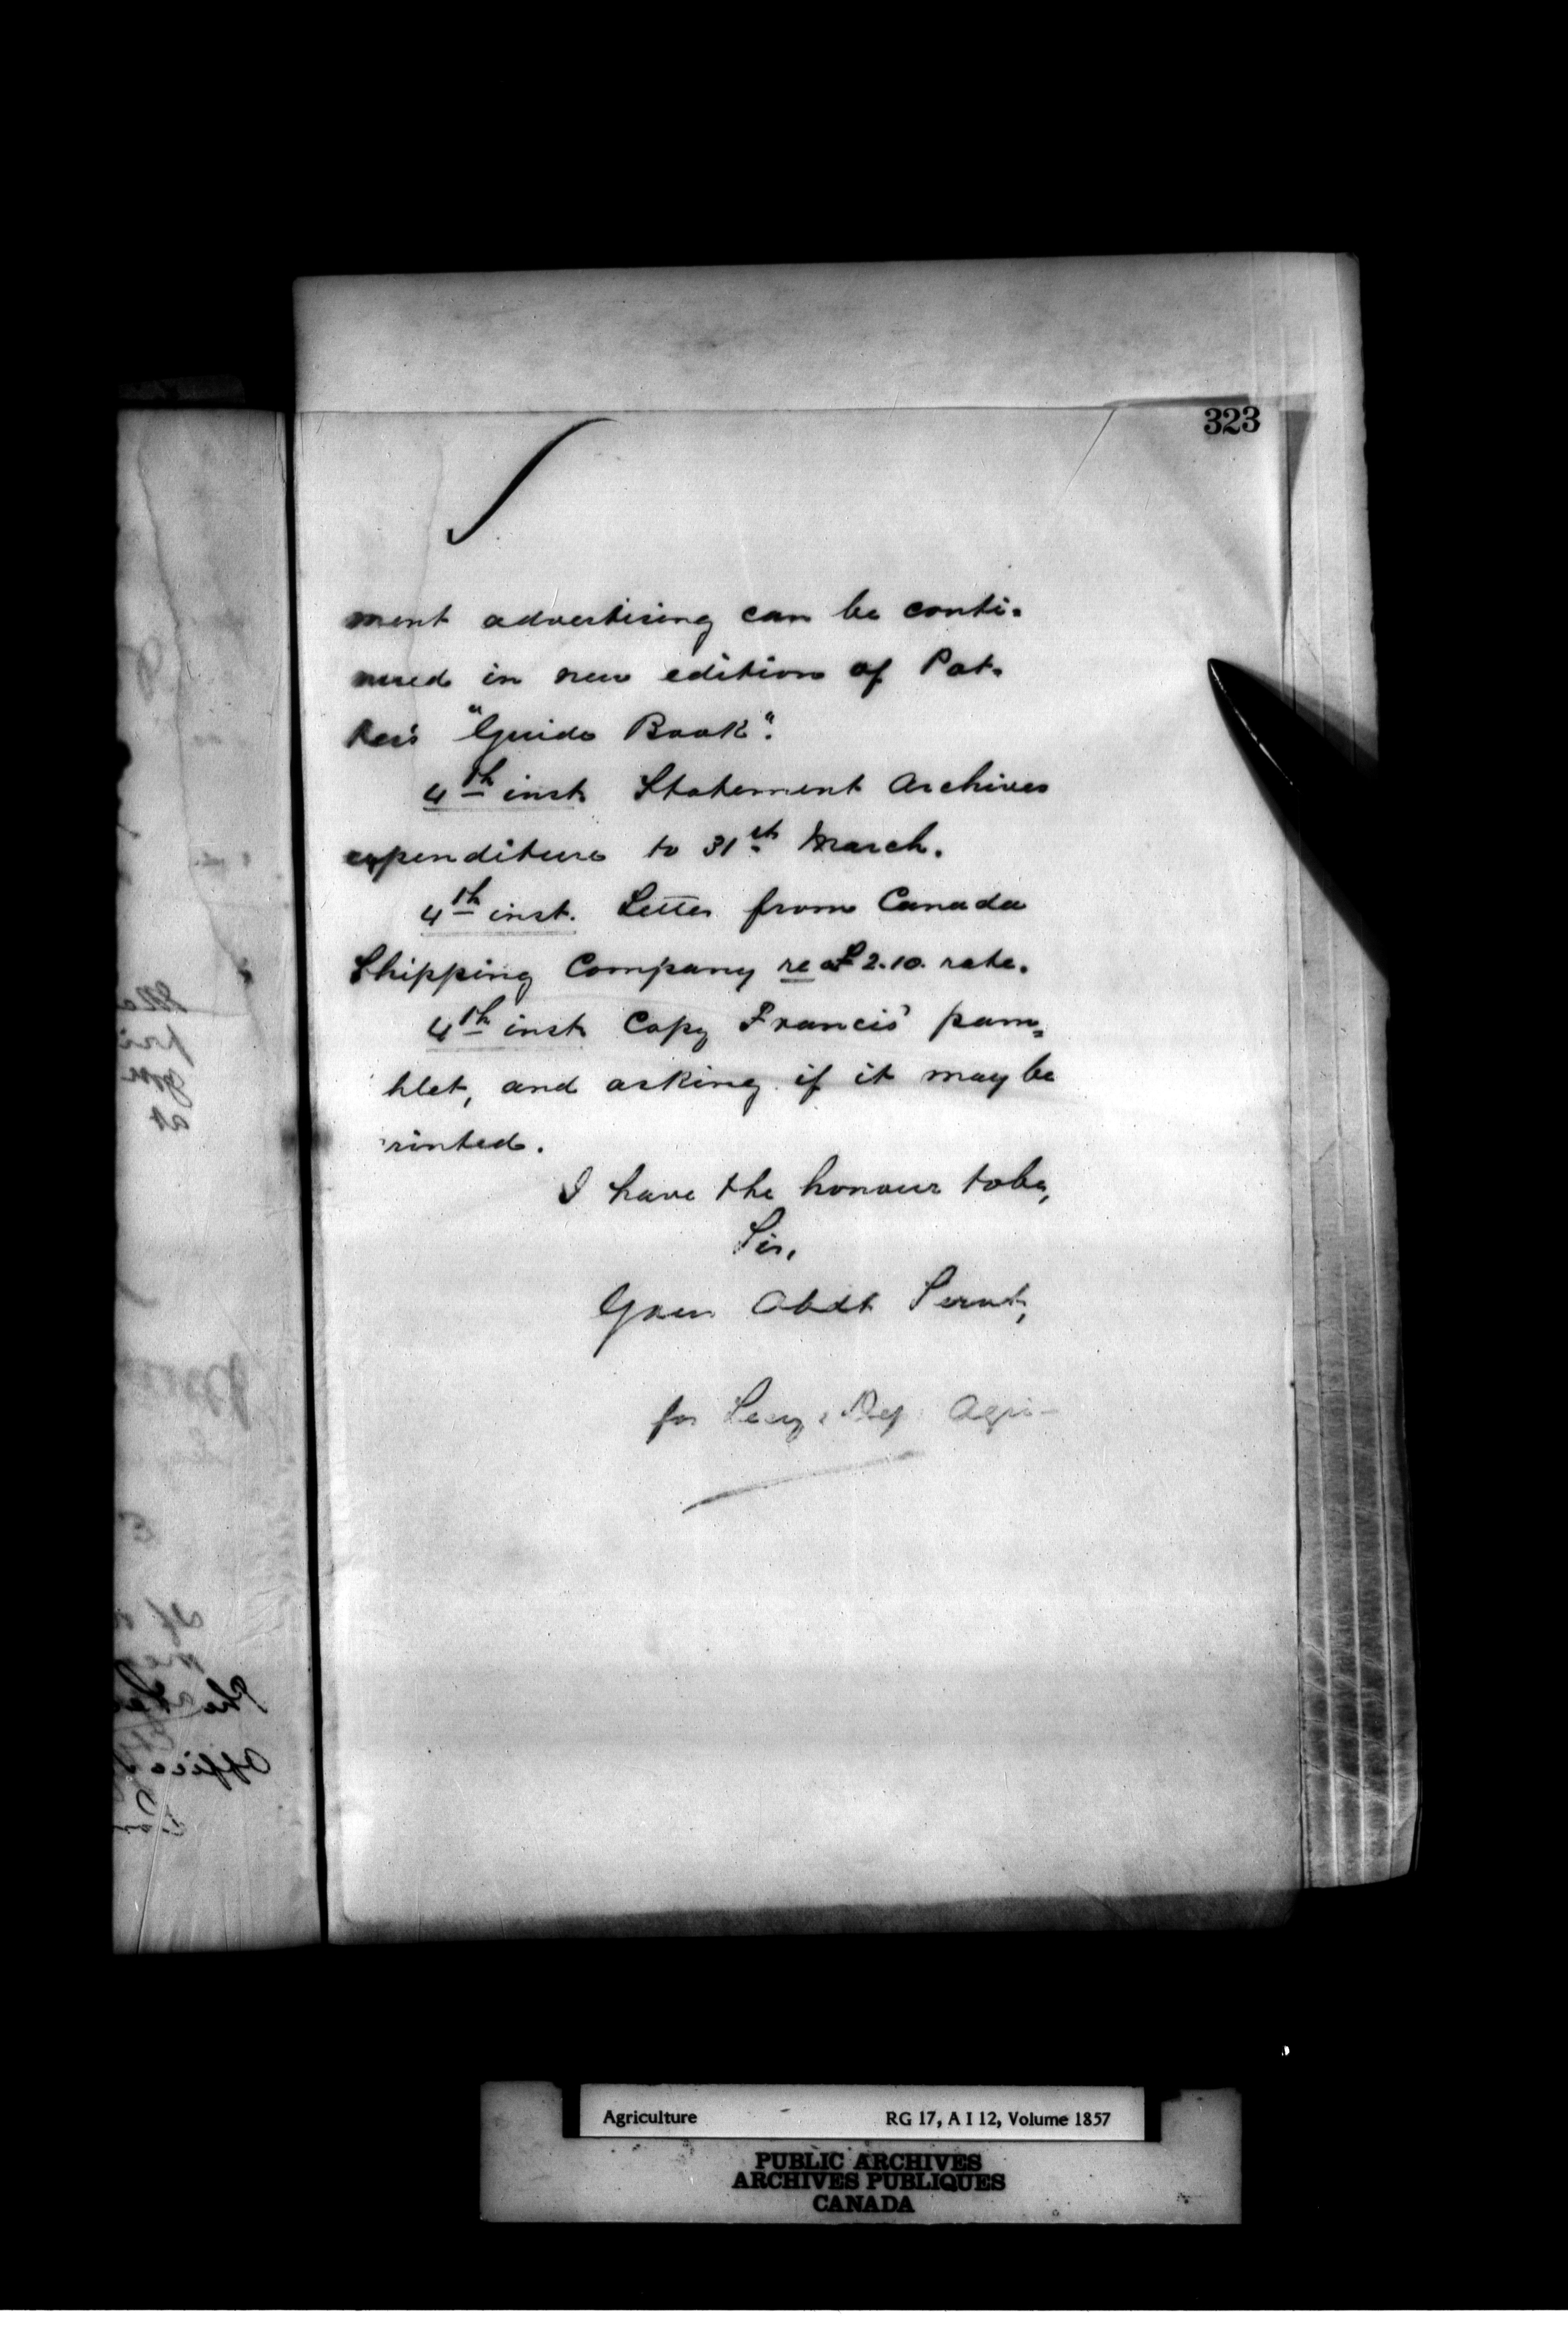 323
ment advertising can be conti-
nued in new edition of Pot-
ter's "Guide Book".
4th inst. Statement Archives
expenditure to 31st March.
4th inst. Letter from Canada
Shipping Company re £2.10. rate.
4th inst. Copy Francis' pam=
hlet, and asking if it may be
rinted.
I have the honour to be,
Sir,
Your Obdt Servt,
for Secy. Dep. Agri-
The
Office
Agriculture RG 17, A I 12, Volume 1857
PUBLIC ARCHIVES
ARCHIVES PUBLIQUES
CANADA